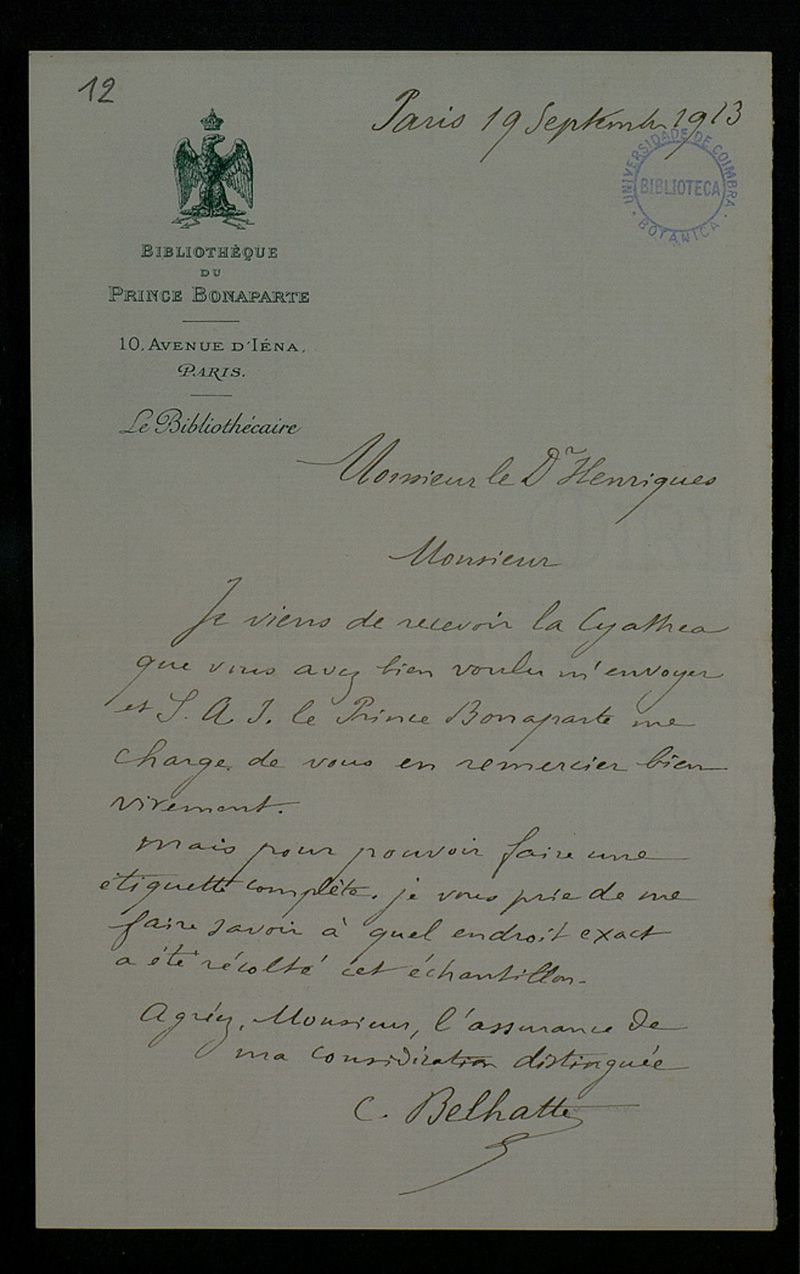 12
Paris 19 Septembre 1913
UNIVERSIDADE DE COIMBRA
BIBLIOTECA
BOTANICA
BIBLIOTHÈQUE
DU
PRINCE BONAPARTE
10, AVENUE D'IÉNA,
PARIS.
Le Bibliothécaire
Monsieur le Dr Henriques
Monsieur
Je viens de recevoir la Cyathea
que vous avez bien voulu m'envoyer
et S. A. I. le Prince Bonaparte me
charge de vous en remercier bien
vivement.
Mais pour pouvoir faire une
étiquette complète, je vous prie de me
faire savoir à quel endroit exact
a été récolté cet échantillon.
Agréez, Monsieur, l'assurance de
ma considération distinguée
C. Belhatte